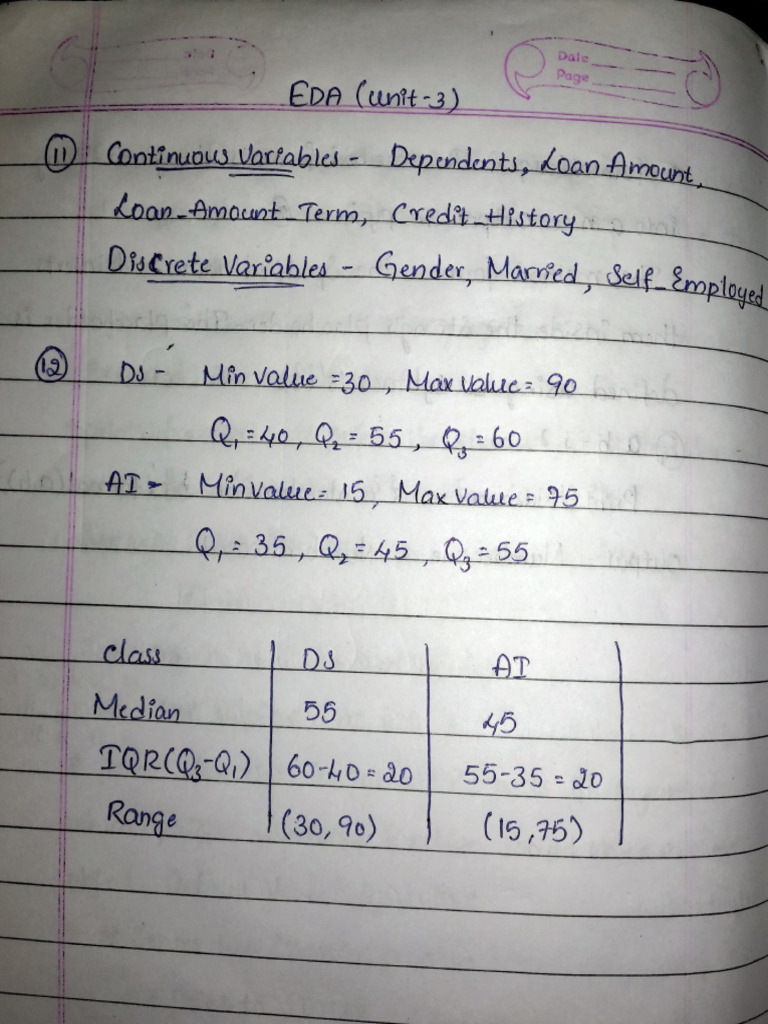 Date
Page
EDA (Unit-3)
11 Continuous Variables - Dependents, Loan Amount,
Loan_Amount_Term, Credit_History
Discrete Variables - Gender, Married, Self_Employed
12 DS - Min value = 30, Max value = 90
Q1 = 40, Q2 = 55, Q3 = 60
AI - Min value = 15, Max value = 75
Q1 = 35, Q2 = 45, Q3 = 55
Class DS AI
Median 55 45
IQR(Q3-Q1) 60-40 = 20 55-35 = 20
Range (30, 90) (15, 75)